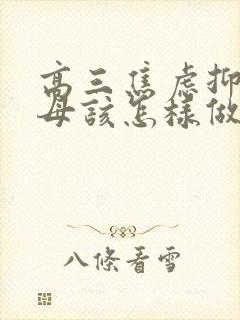 高三焦虑抑
母该怎样做
八條看雪